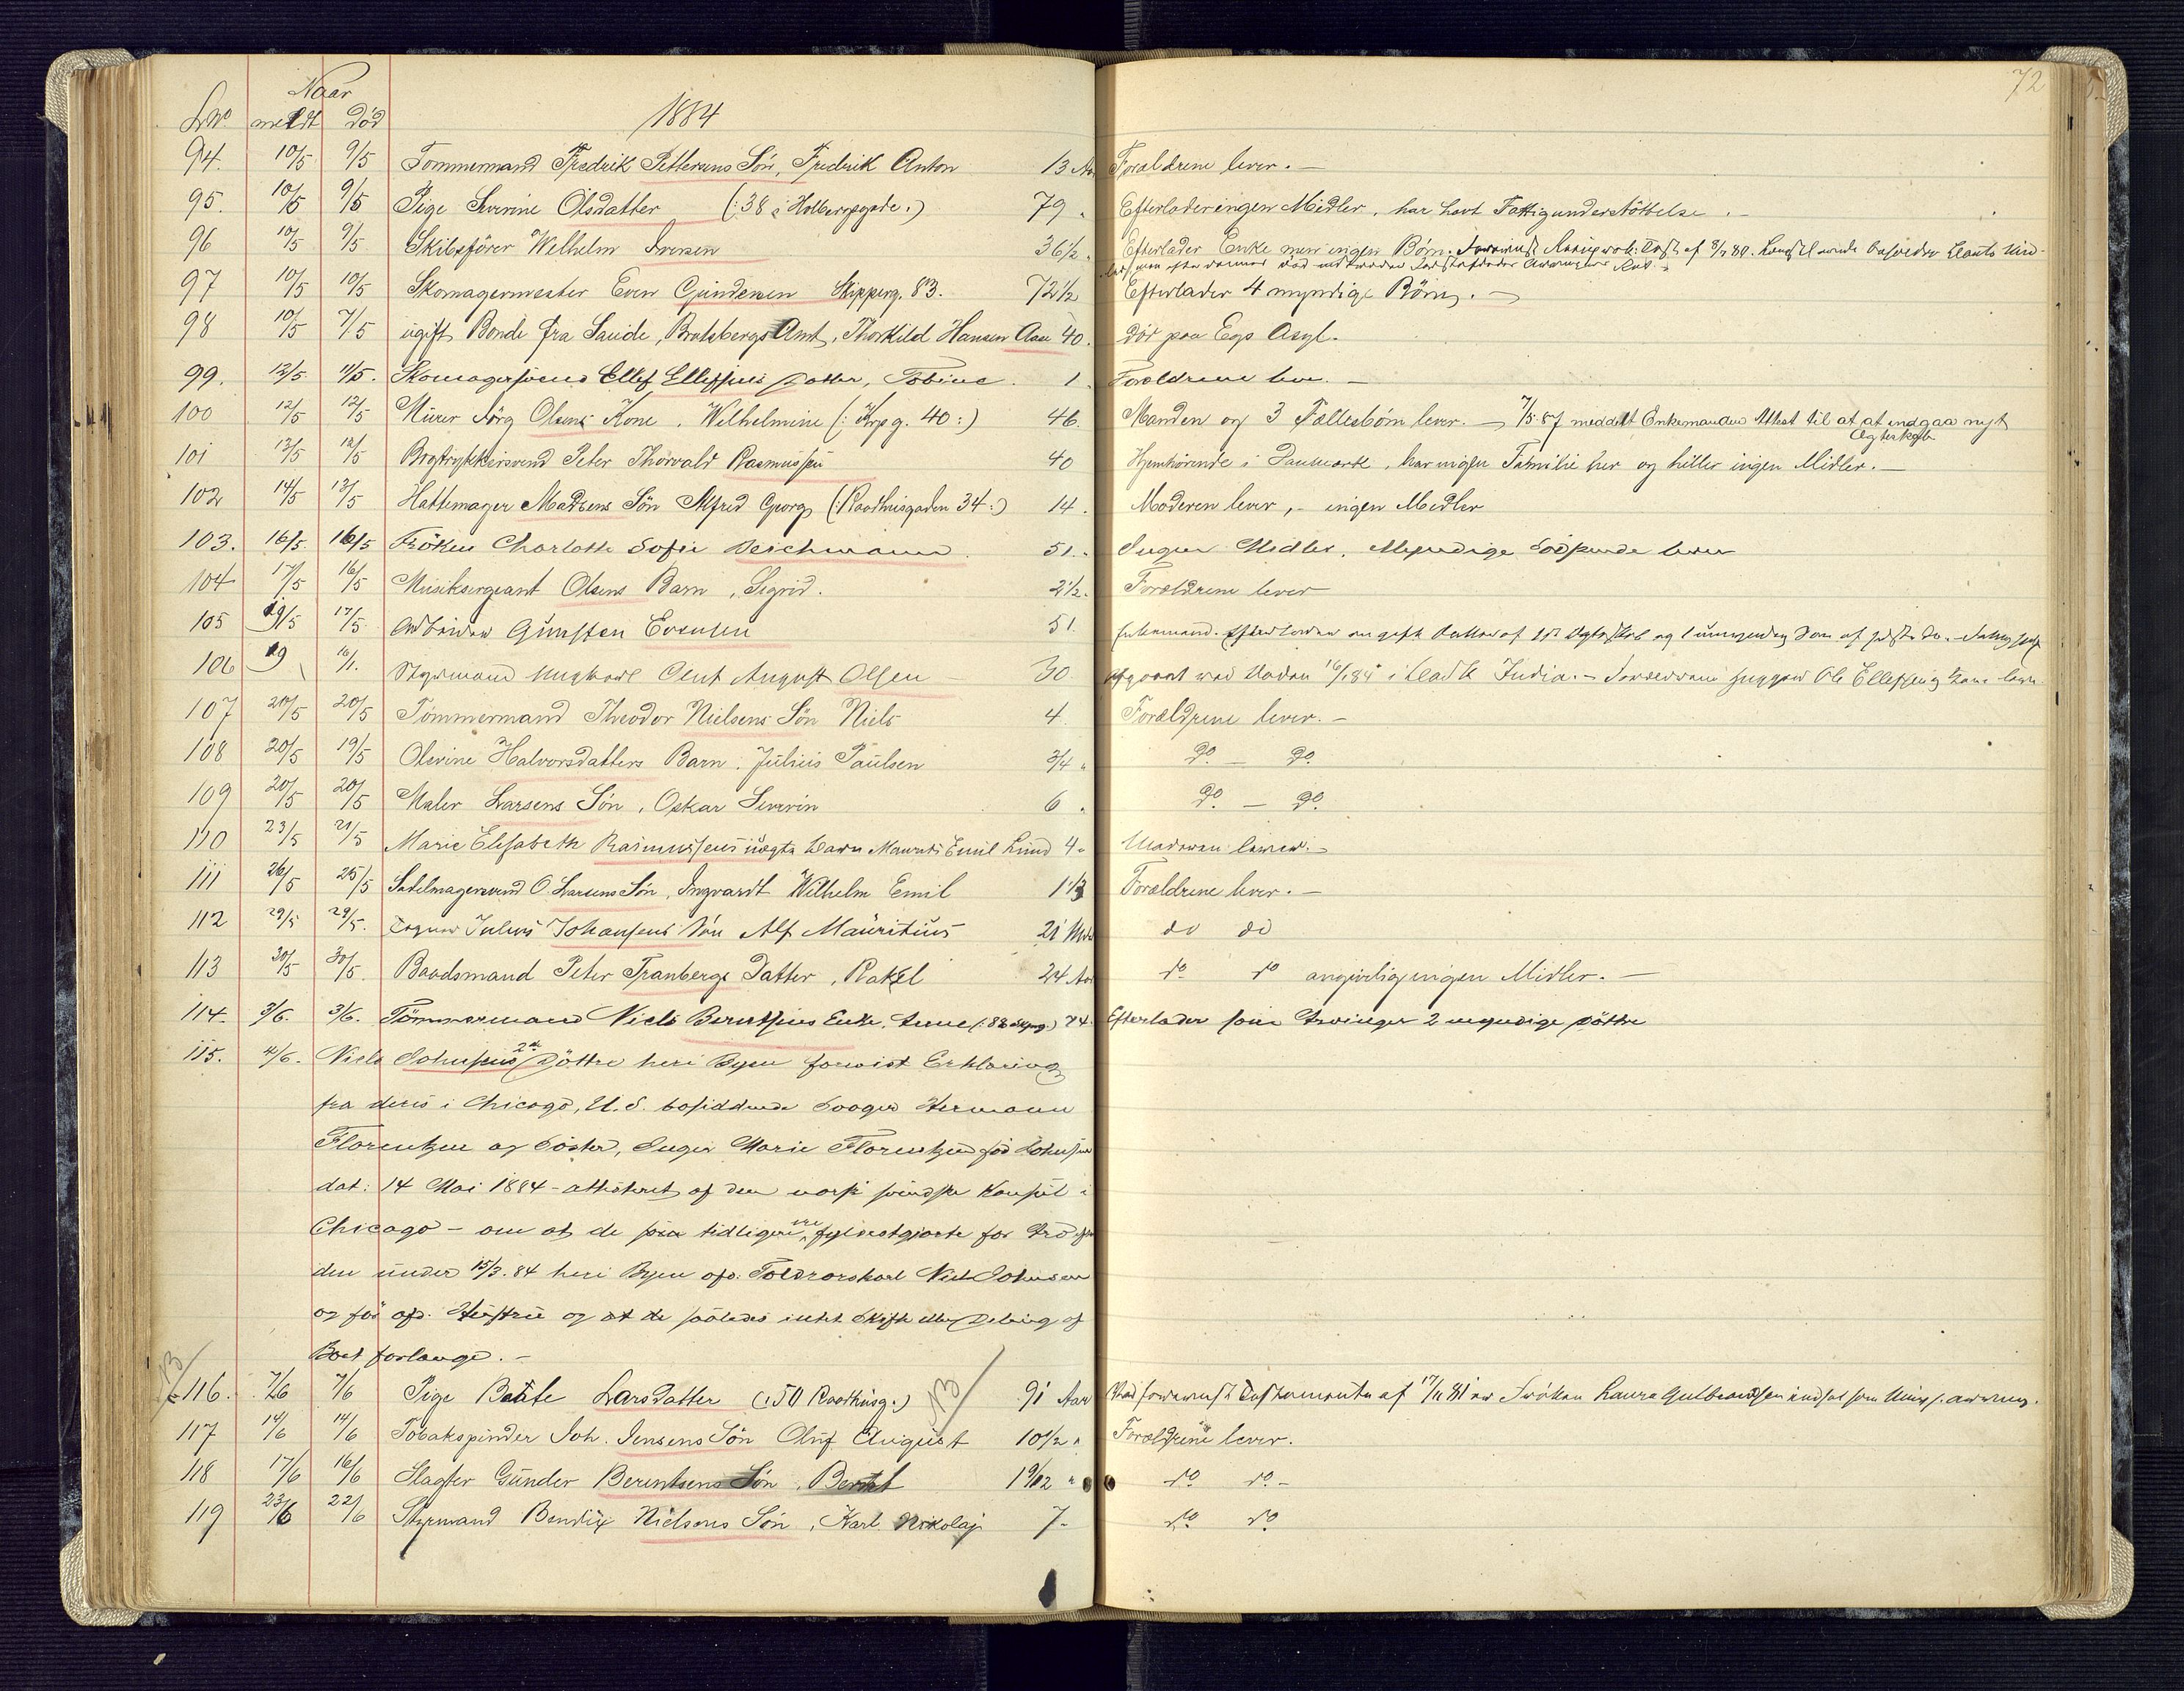 72
Naar
LNo. meldt Død 1884
94. 10/5 9/5 Tømmermand Fredrik Pettersens Søn, Fredrik Anton 13 Aar Forældrene lever. —
95. 10/5 9/5 Pige Severine Olsdatter (: 38 i Holbergsgade :) 79 " Efterlader ingen Midler, har havt Fattigunderstøttelse. —
96 10/5 9/5 Skibsfører Wilhelm Iversen 36 1/2 " Efterlader Enke men ingen Børn.
97 10/5 10/5 Skomagermester Even Gundersen Skipperg. 83. 72 1/2 Efterlader 4 myndige Børn. —
98 10/5 7/5 ugift Bonde fra Saude, Bratsbergs Amt, Thorkild Hansen Aase 40. Død paa Egs Asyl.
99. 12/5 11/5. Skomagersvend Ellef Ellefsens Datter, Tobine. 1. Forældrene leve. —
100 12/5 12/5 Murer Jørg Olsens Kone, Wilhelmine (: Krpg. 40 :) 46. Manden og 3 Fællesbørn lever. — 7/5 87 meddelt Enkemanden Attest til at at indgaa nyt
Ægteskab
101 13/5 12/5 Bogtrykkersvend Peter Thorvald Rasmussen 40 Hjemhørende i Danmark, har ingen Familie her og heller ingen Midler. —
102 14/5 13/5 Hattemager Madsens Søn Alfred Georg (: Raadhusgaden 34 :) 14. Moderen lever, - ingen Midler
103. 16/5 16/5 Frøken Charlotte Sofie Deichmann. 51. " Ingen Midler, Myndige Sødskende lever
104 17/5 16/5 Musiksergeant Olsens Barn, Sigrid. 2 1/2. Forældrene lever
105 19/5 17/5. Arbeider Gunsten Evensen 51. Enkemand.
106 19 16/1. Styrmand Ungkarl Olut August Olsen 30 Afgaaet ved Døden 16/1 84 i India. —
107 20/5 20/5 Tømmermand Theodor Nielsens Søn Niels 4. Forældrene lever. —
108 20/5 19/5 Olevine Halvorsdatters Barn. Julius Paulsen 3/4 " Do — Do
109 20/5 20/5 Maler Larsens Søn, Oskar Severin 6 " Do. — Do.
110 23/5 21/5 Marie Elisabeth Rasmussens uægte Barn Emil Lund 4 " Moderen lever. —
111 26/5 25/5 Sadelmagersvend O. Larsens Søn, Ingvardt Wilhelm Emil 1 1/3 Forældrene lever. —
112 29/5 29/5. Julius Johansens Søn Alf Mauritius 21 do do
113 30/5 30/5. Baadsmand Peter Tranbergs Datter, Rakel 24 Aar do do angivelig ingen Midler. —
114. 3/6. 3/6. Tømmermand Niels Berntsens Enke, Anne 74. Efterlader som Arvinger 2 myndige Døttre
115. 4/6. Niels Johnsens 2de Døttre heri Byen forevist Erklæring
fra deres i Chicago, U.S. bosiddende Svoger Hermann
Florentzen og Søster, Inger Marie Florentzen fød Johnsen
dat: 14 Mai 1884 - attesteret af den norsk svendske Konsul i
Chicago - om at de som tidligere ere fyldestgjorte for Arv efter
den under 15/3. 84 heri Byen afd. Toldrorskarl Niels Johnsen
og før afd. Hustru og at de saaledes intet Skifte eller Deling af
Boet forlange. —
NB
116. 7/6 7/6 Pige Berte Larsdatter (: 50 Raadhusg. :) NB 91 Aar Frøken Laura Gulbrandsen indsat som
117 14/6 14/6 Tobakspinder Joh. Jensens Søn Oluf August 10 1/2 " Forældrene lever.
118 17/6 16/6 Slagter Gunder Berentsens Søn, Berent 1 9/12 " do do —
119 23/6 22/6 Styrmand Bendix Nielsens Søn, Karl Nikolaj 7 — do do